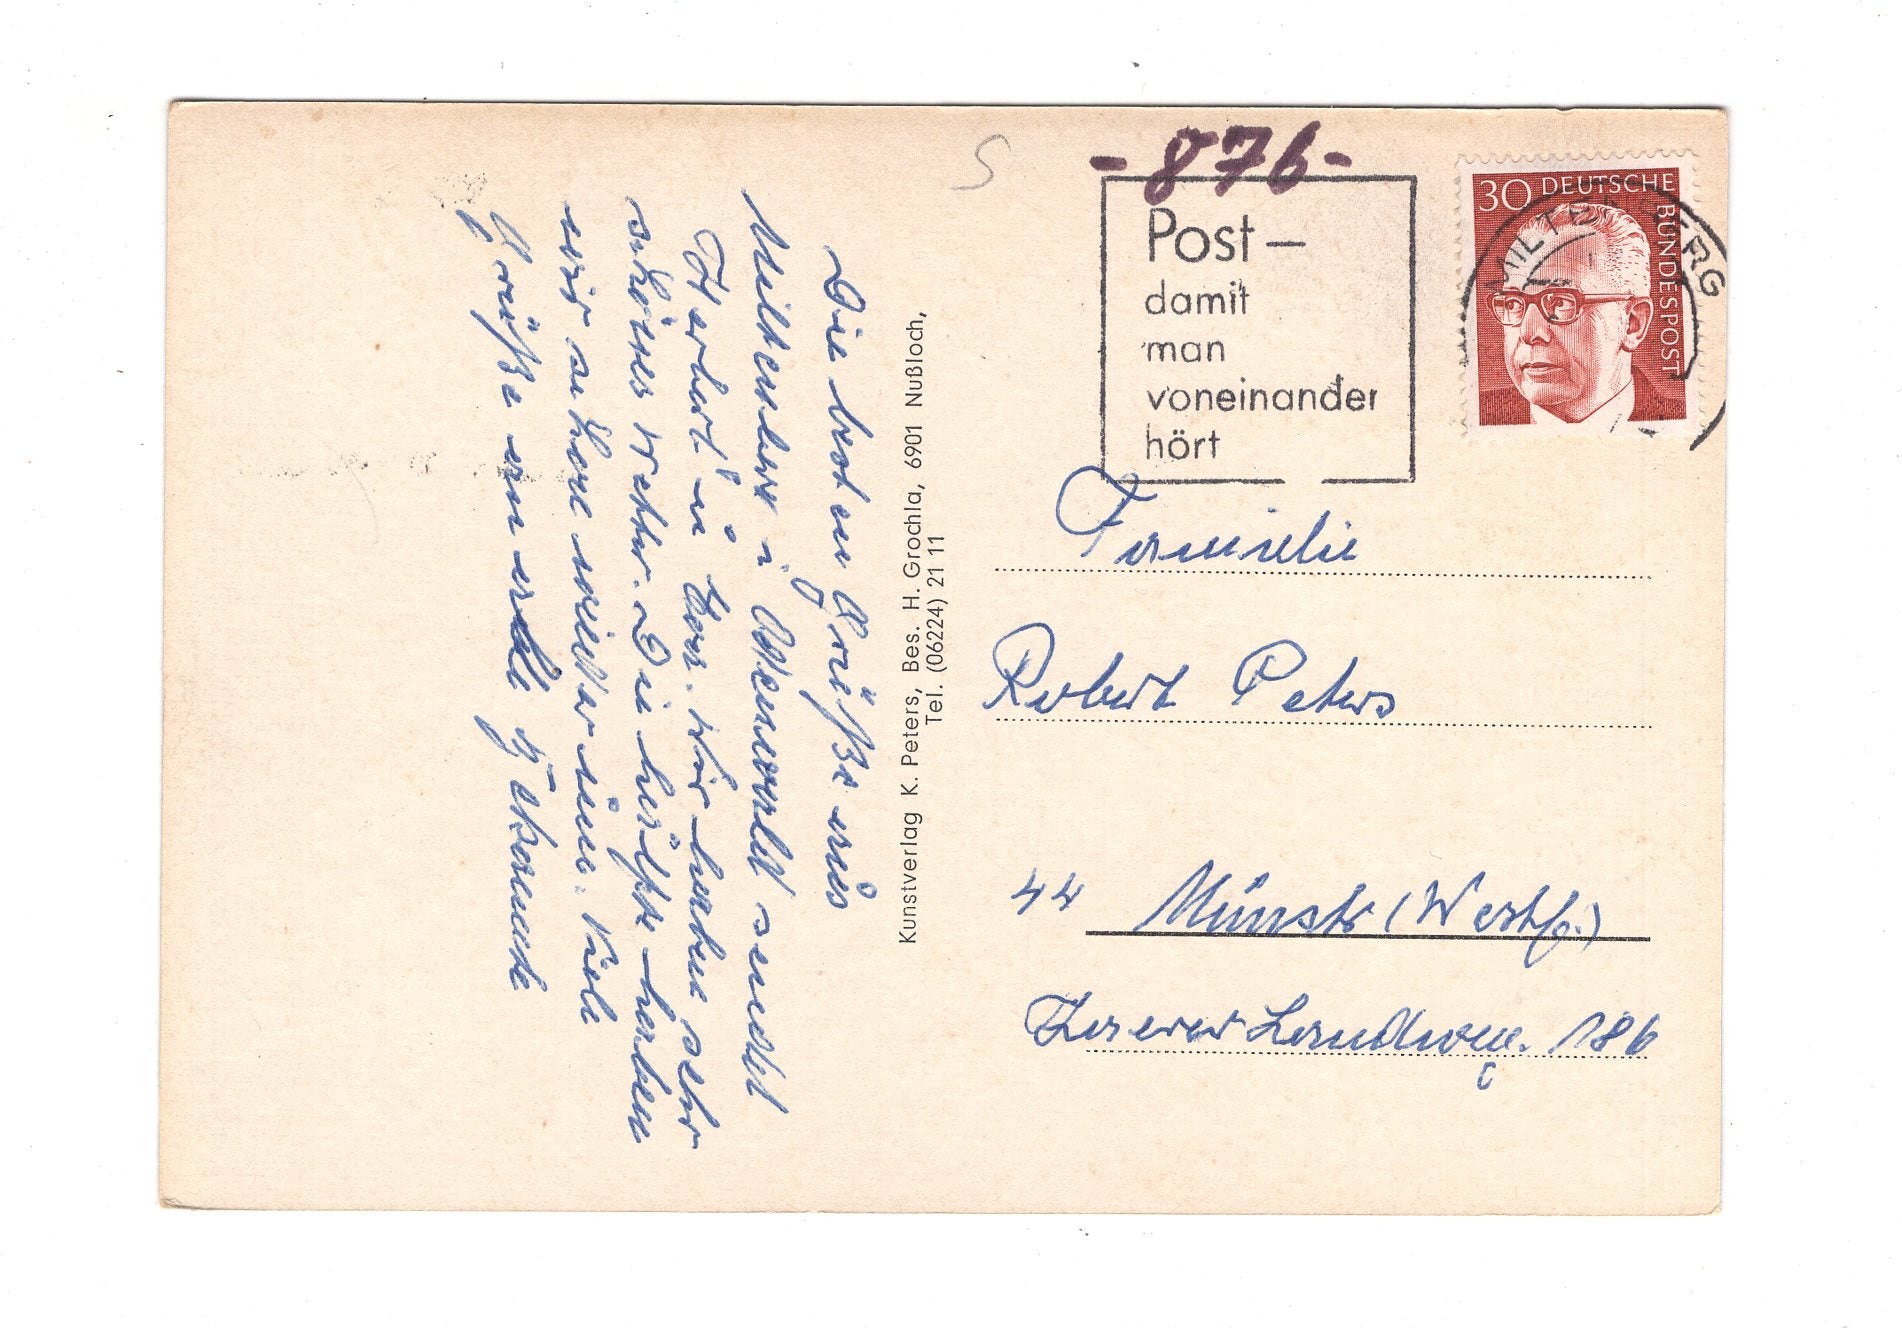 Die besten Grüße aus
Miltenberg i. Odenwald sendet
Herbert u. Ger. Wir haben sehr
schönes Wetter. Die hälfte haben
wir schon wieder rum. Viele
Grüße an alle
Kunstverlag K. Peters, Bes. H. Grochla, 6901 Nußloch,
Tel. (06224) 21 11
S
-876-
Post –
damit
man
voneinander
hört
30 DEUTSCHE
BUNDESPOST
MILTENBERG
Familie
Robert Peters
44 Münster (Westf.)
Landweg. 186